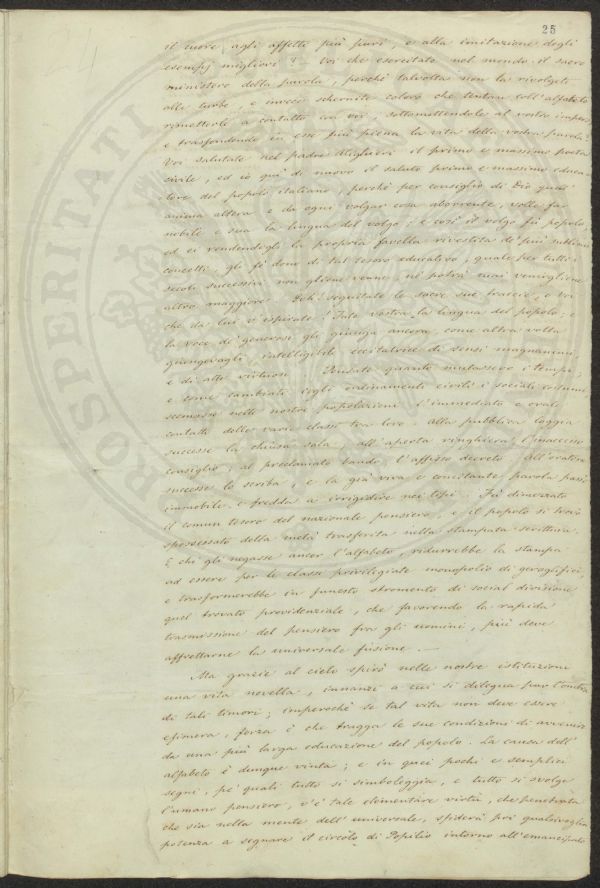 25
il cuore agli affetti più puri, e alla imitazione degli
esempj migliori? — Voi che esercitate nel mondo il sacro
ministero della parola, perchè talvolta non la rivolgete
alle turbe, e invece schernite coloro che tentan coll'alfabeto
rimetterle a contatto con voi, sottomettendole al vostro impero,
e trasfondendo in esse più piena la vita della vostra parola?
Voi salutate nel padre Alighieri il primo e massimo poeta
civile, ed io quì di nuovo il saluto primo e massimo educa-
tore del popolo italiano, perchè per consiglio di Dio quell'
anima altera e da ogni volgar cosa aborrente, volle far
nobile e sua la lingua del volgo; e così il volgo fù popolo;
ed ei rendendogli la propria favella rivestita de' più sublimi
concetti, gli fè dono di tal tesoro educativo, quale per tutti i
secoli successivi non gliene venne, nè potrà mai venirgliene
altro maggiore. Deh! seguitate le sacre sue traccie, o voi
che da lui v'ispirate! Fate vostra la lingua del popolo; e
la voce de' generosi gli giunga ancora, come altra volta
giungevagli, intelligibile eccitatrice di sensi magnanimi,
e di alte virtù. Pensate quanto mutassero i tempi,
e come cambiati cogli ordinamenti civili i sociali costumi,
scemasse nelle nostre popolazioni l'immediato e orale
contatto delle varie classi tra loro. Alla pubblica loggia
successe la chiusa sala; all'aperta ringhiera, l'inaccesso
consiglio; al proclamato bando l'affisso decreto. All'oratore
successe lo scriba, e la già viva e concitante parola passò
immobile e fredda a irrigidire nei tipi. Fù dimezzato
il comun tesoro del nazionale pensiero, e il popolo si trovò
spossessato della metà trasferita nella stampata scrittura.
E chi gli negasse ancor l'alfabeto, ridurrebbe la stampa
ad essere per le classi privilegiate monopolio di geroglifici,
e trasformerebbe in funesto stromento di social divisione
quel trovato provvidenziale, che favorendo la rapida
trasmissione del pensiero fra gli uomini, più deve
affrettarne la universale fusione. —
Ma grazie al cielo spirò nelle nostre istituzioni
una vita novella, innanzi a cui si dilegua pur l'ombra
di tali timori; imperochè se tal vita non deve essere
efimera, forza è che tragga le sue condizioni di avvenire
da una più larga educazione del popolo. La causa dell'
alfabeto è dunque vinta; e in quei pochi e semplici
segni, pe' quali tutto si simboleggia, e tutto si svolge
l'umano pensiero, v'è tale elementare virtù, che penetrata
che sia nella mente dell'universale, sfiderà poi qualsivoglia
potenza a segnare il circolo di Popilio intorno all'emancipato
PROSPERITATI